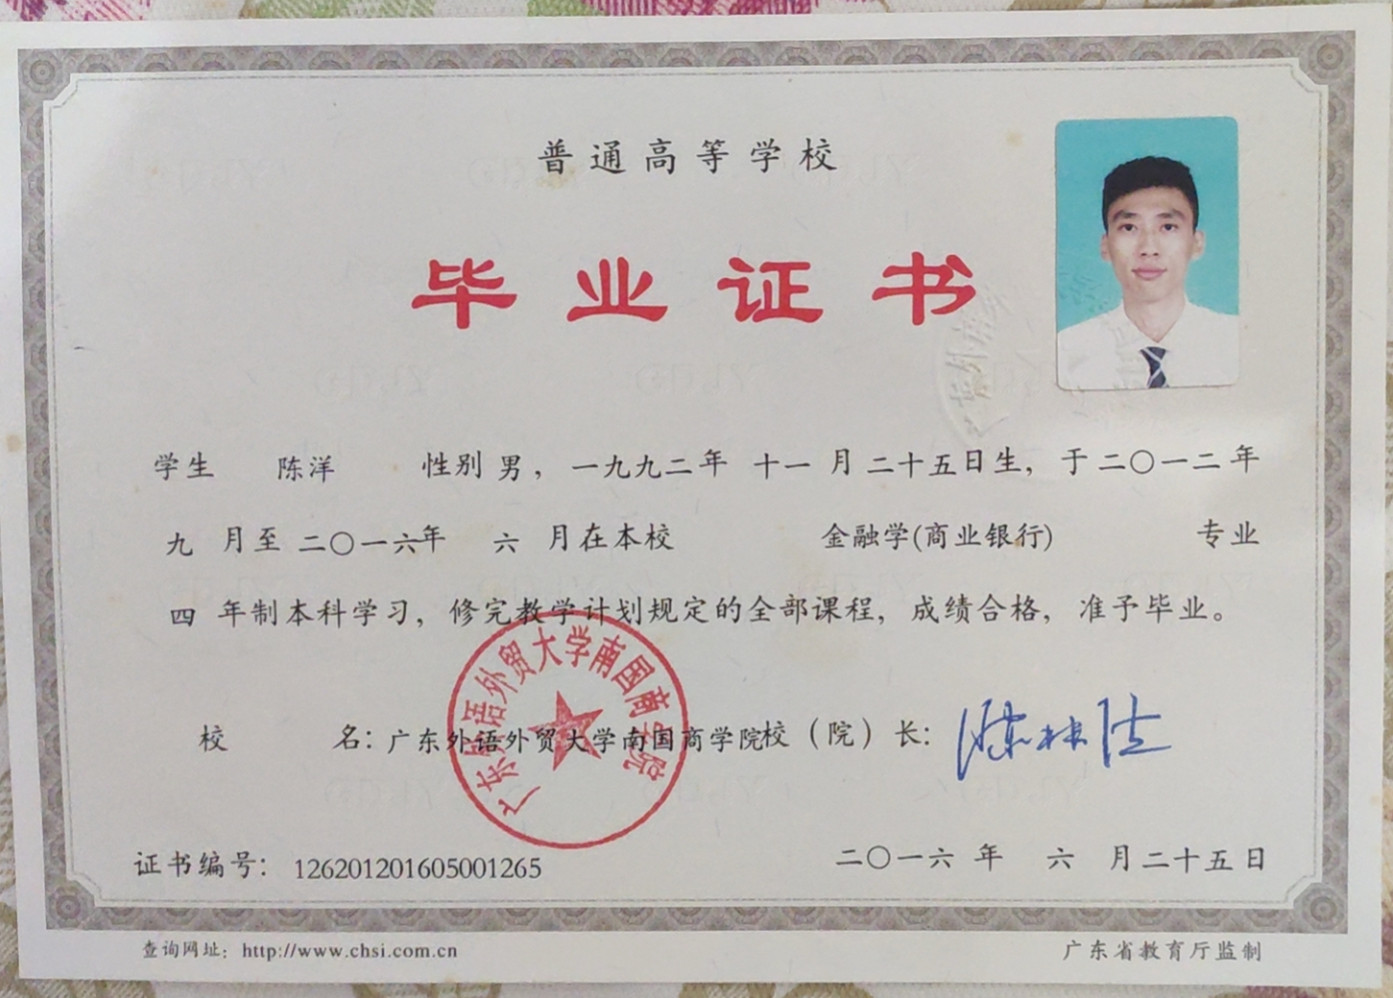 普通高等学校
毕业证书
学生 陈洋 性别 男，一九九二年 十一 月 二十五日生，于 二〇一二 年
九 月至 二〇一六年 六 月在本校 金融学(商业银行) 专业
四 年制本科学习，修完教学计划规定的全部课程，成绩合格，准予毕业。
校 名：广东外语外贸大学南国商学院校（院）长：
广东外语外贸大学南国商学院
证书编号：126201201605001265
二〇一六 年 六 月二十五日
查询网址：http://www.chsi.com.cn
广东省教育厅监制